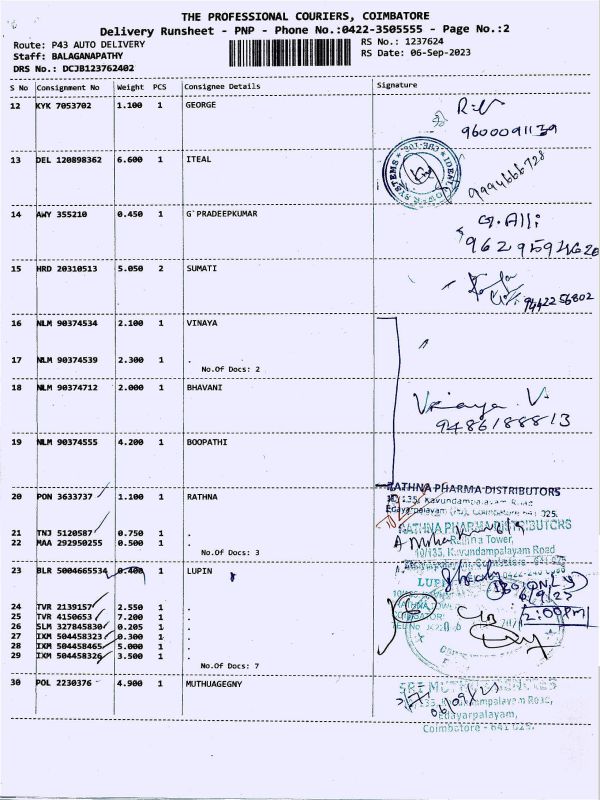 THE PROFESSIONAL COURIERS, COIMBATORE
Delivery Runsheet - PNP - Phone No.:0422-3505555 - Page No.:2
Route: P43 AUTO DELIVERY
RS No.: 1237624
Staff: BALAGANAPATHY
RS Date: 06-Sep-2023
DRS No.: DCJB123762402
S No Consignment No Weight PCS Consignee Details Signature
12 KYK 7053702 1.100 1 GEORGE
9600091139
13 DEL 120898362 6.600 1 ITEAL
9994666728
14 AWY 355210 0.450 1 G PRADEEPKUMAR
G.Alli
15 HRD 20310513 5.050 2 SUMATI
9442256802
16 NLM 90374534 2.100 1 VINAYA
17 NLM 90374539 2.300 1 .
No.Of Docs: 2
18 NLM 90374712 2.000 1 BHAVANI
9486188813
19 NLM 90374555 4.200 1 BOOPATHI
RATHNA PHARMA DISTRIBUTORS
20 PON 3633737 1.100 1 RATHNA
RATHNA PHARMA DISTRIBUTORS
21 TNJ 5120587 0.750 1 .
Rathna Tower,
22 MAA 292950255 0.500 1 .
10/135, Kavundampalayam Road
No.Of Docs: 3
23 BLR 5004665534 0.400 1 LUPIN
LUPIN
6/9/23
2:00PM
24 TVR 2139157 2.550 1 .
25 TVR 4150653 7.200 1 .
26 SLM 327845830 0.205 1 .
27 IXM 504458323 0.300 1 .
28 IXM 504458465 5.000 1 .
29 IXM 504458326 3.500 1 .
No.Of Docs: 7
30 POL 2230376 4.900 1 MUTHUAGEGNY
Edayarpalayam,
Coimbatore - 641 025.